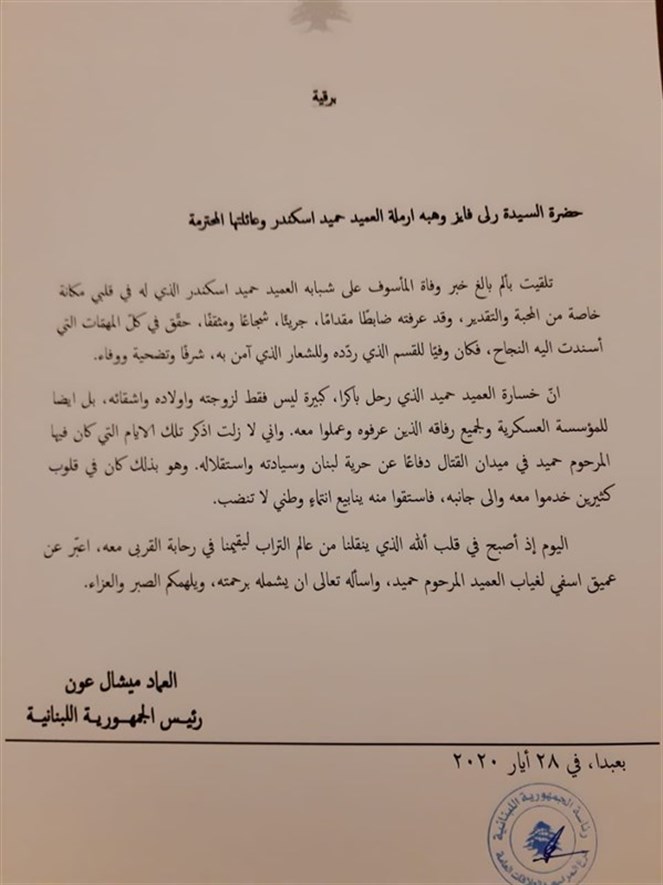 برقية
حضرة السيدة رلى فايز وهبه ارملة العميد حميد اسكندر وعائلتها المحترمة
تلقيت بألم بالغ خبر وفاة المأسوف على شبابه العميد حميد اسكندر الذي له في قلبي مكانة
خاصة من المحبة والتقدير، وقد عرفته ضابطًا مقدامًا، جريئًا، شجاعًا ومثقفًا، حقّق في كلّ المهمّات التي
أسندت اليه النجاح، فكان وفيًا للقسم الذي ردّده وللشعار الذي آمن به، شرفًا وتضحية ووفاء.
انّ خسارة العميد حميد الذي رحل باكرا، كبيرة ليس فقط لزوجته واولاده واشقائه، بل ايضا
للمؤسسة العسكرية ولجميع رفاقه الذين عرفوه وعملوا معه. واني لا زلت اذكر تلك الايام التي كان فيها
المرحوم حميد في ميدان القتال دفاعًا عن حرية لبنان وسيادته واستقلاله. وهو بذلك كان في قلوب
كثيرين خدموا معه والى جانبه، فاستقوا منه ينابيع انتماءٍ وطني لا تنضب.
اليوم إذ أصبح في قلب ألله الذي ينقلنا من عالم التراب ليقيمنا في رحابة القربى معه، اعبّر عن
عميق اسفي لغياب العميد المرحوم حميد، واسأله تعالى ان يشمله برحمته، ويلهمكم الصبر والعزاء.
العماد ميشال عون
رئيس الجمهورية اللبنانية
بعبدا، في ٢٨ أيار ٢٠٢٠
رئاسة الجمهورية اللبنانية
والعلاقات العامة